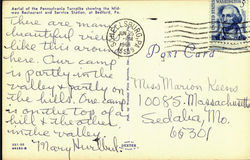 Aerial of the Pennsylvania Turnpike showing the Mid-
way Restaurant and Service Station, at Bedford, Pa.
There are many
beautiful views
like this around
here. Our camp
is partly in the
valley & partly on
the hills. One camp
is on the top of a
hill & the other
in the valley.
Mary
Post Card
Miss Marion Keens
10085 Massachusetts
Sedalia, Mo.
66301